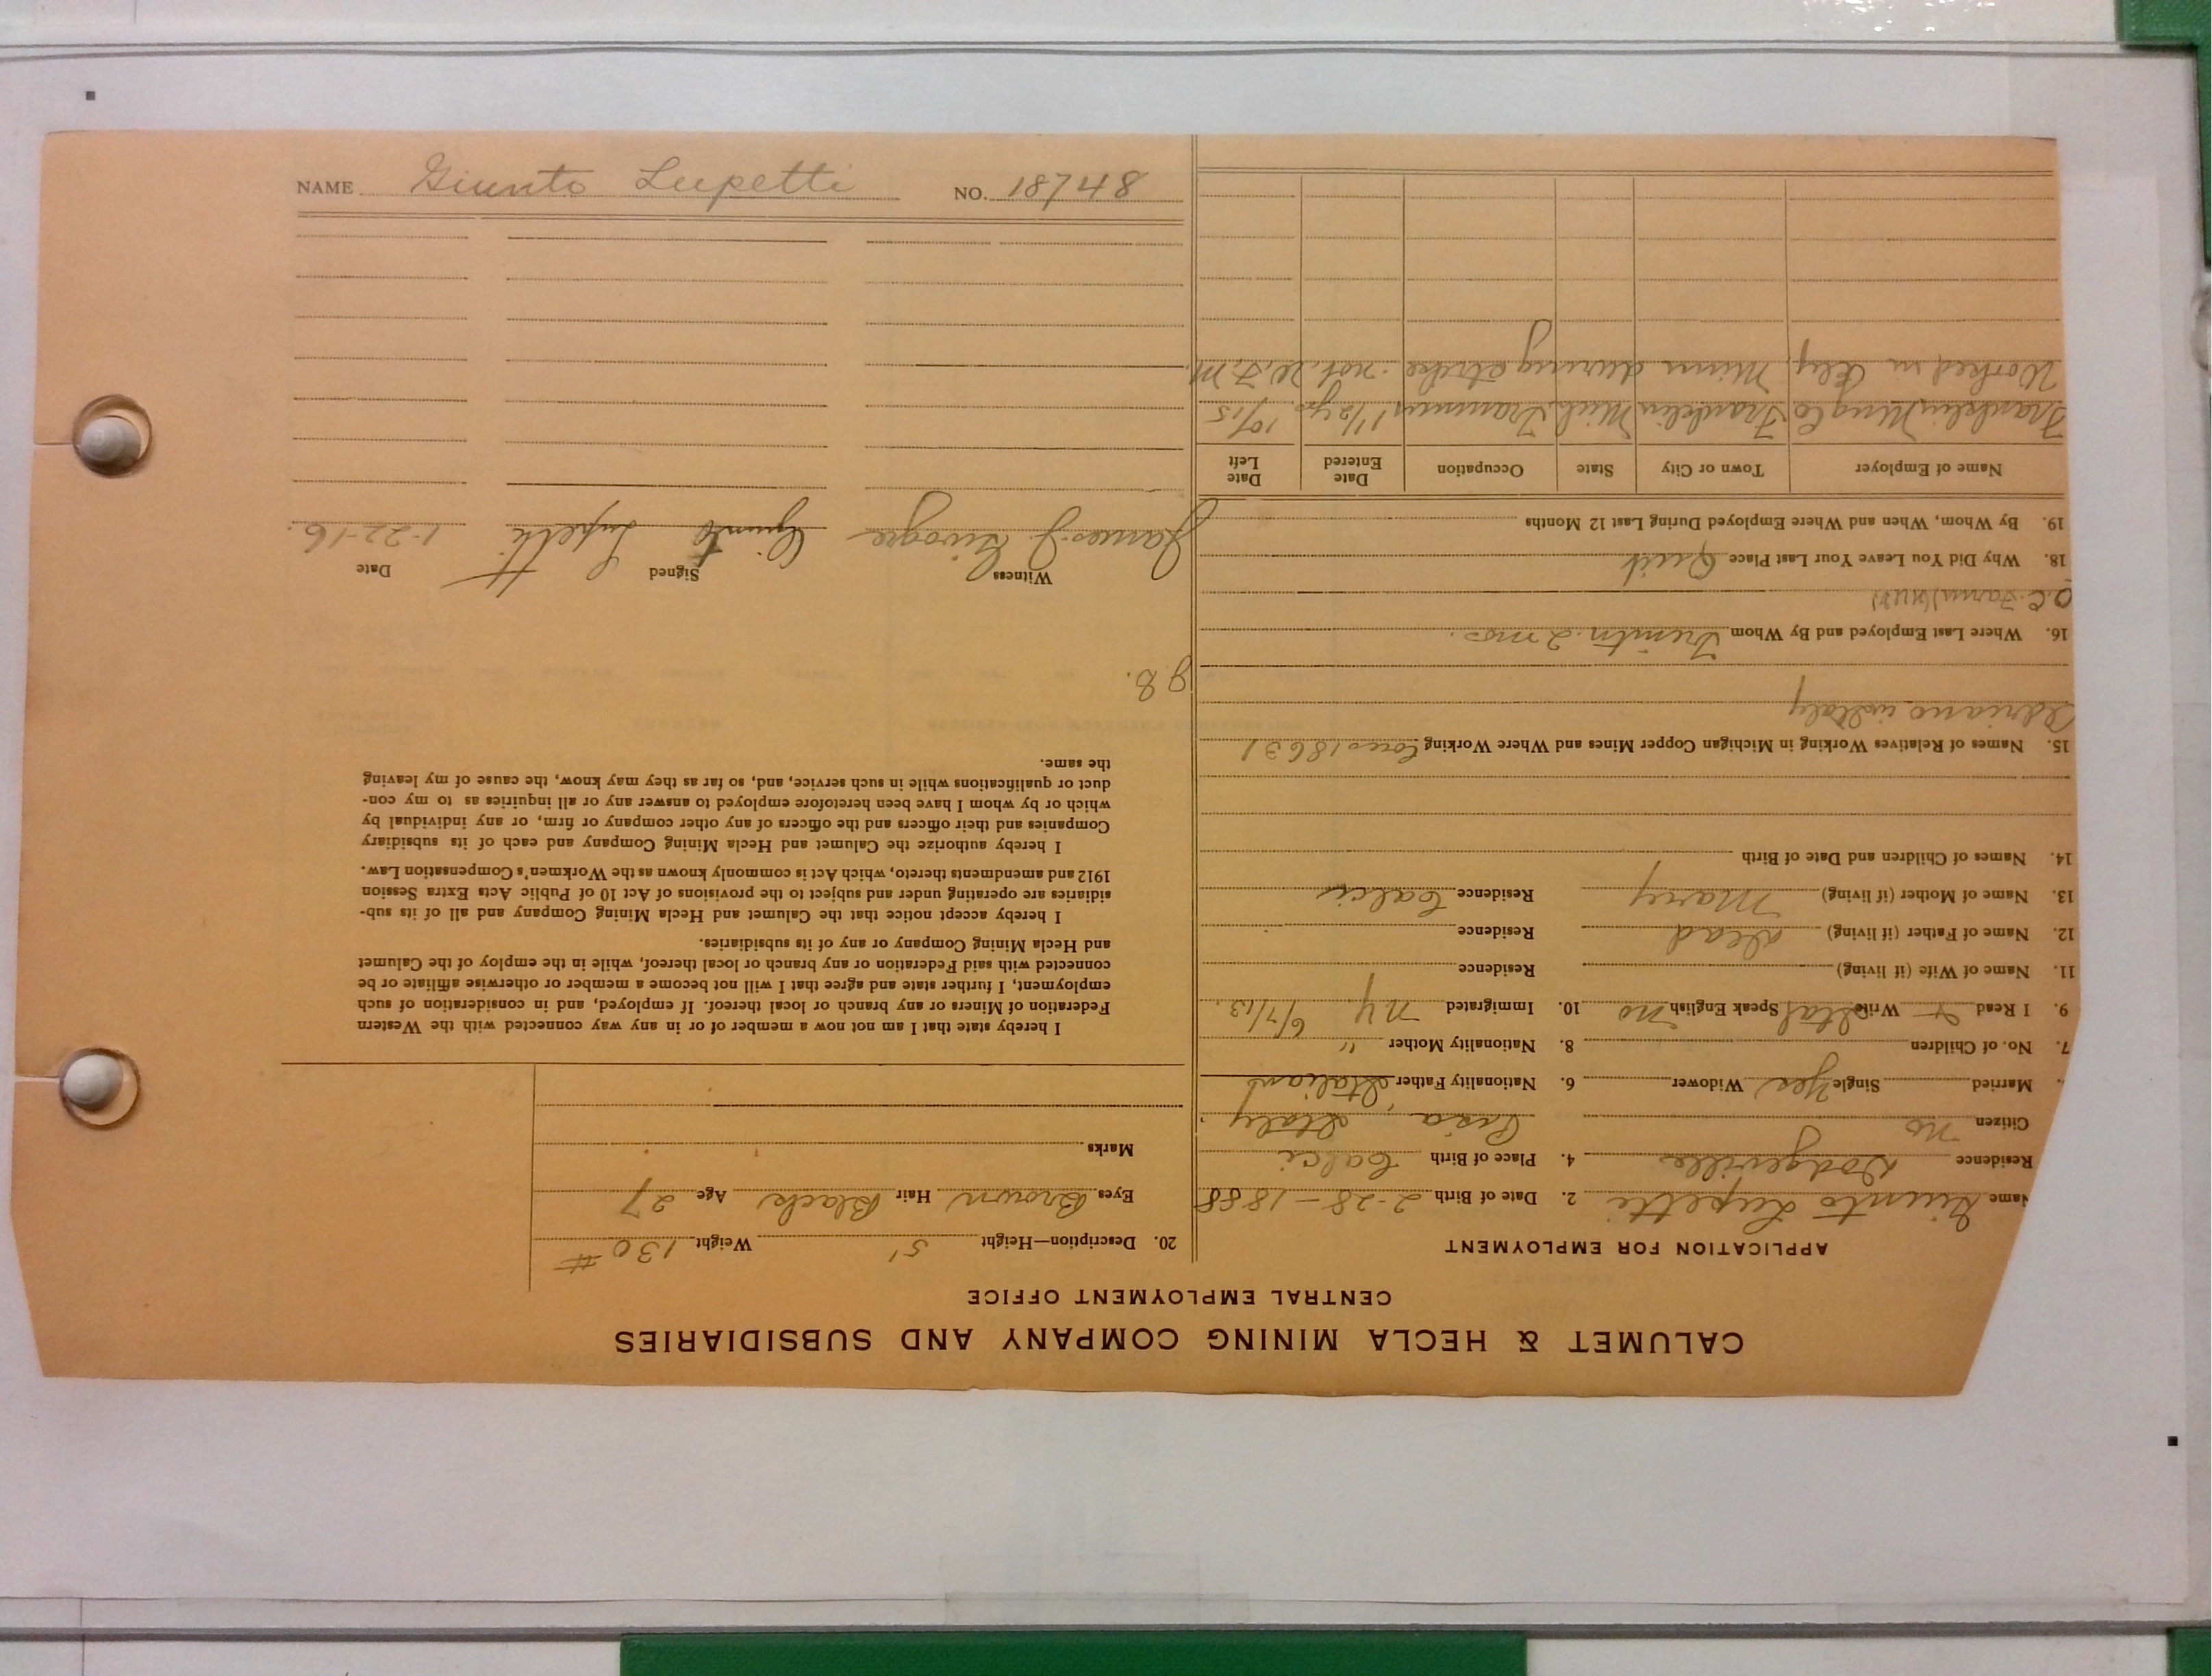 NAME Giunto Lupetti NO. 18748
CALUMET & HECLA MINING COMPANY AND SUBSIDIARIES
CENTRAL EMPLOYMENT OFFICE
APPLICATION FOR EMPLOYMENT
Name Giunto Lupetti 2. Date of Birth 2-28-1888
Residence Dodgeville 4. Place of Birth Calci
Citizen no Pisa, Italy
Married Single Yes Widower 6. Nationality Father Italian
7. No. of Children 8. Nationality Mother "
9. I Read + Write Ital Speak English no 10. Immigrated N.Y. 6/7/13.
11. Name of Wife (if living) Residence
12. Name of Father (if living) dead Residence
13. Name of Mother (if living) Mary Residence Calci
14. Names of Children and Date of Birth
15. Names of Relatives Working in Michigan Copper Mines and Where Working 18631
Adriano in Italy
16. Where Last Employed and By Whom 2 mos.
18. Why Did You Leave Your Last Place Quit
19. By Whom, When and Where Employed During Last 12 Months
Name of Employer Town or City State Occupation Date Entered Date Left
Franklin Ming Co Franklin Mich. Trammer 1 1/2 yrs 10/15
Worked in Ely, Minn during strike. not W.F.M.
20. Description—Height 5' Weight 130 #
Eyes Brown Hair Black Age 27
Marks
I hereby state that I am not now a member of or in any way connected with the Western
Federation of Miners or any branch or local thereof. If employed, and in consideration of such
employment, I further state and agree that I will not become a member or otherwise affiliate or be
connected with said Federation or any branch or local thereof, while in the employ of the Calumet
and Hecla Mining Company or any of its subsidiaries.
I hereby accept notice that the Calumet and Hecla Mining Company and all of its sub-
sidiaries are operating under and subject to the provisions of Act 10 of Public Acts Extra Session
1912 and amendments thereto, which Act is commonly known as the Workmen's Compensation Law.
I hereby authorize the Calumet and Hecla Mining Company and each of its subsidiary
Companies and their officers and the officers of any other company or firm, or any individual by
which or by whom I have been heretofore employed to answer any or all inquiries as to my con-
duct or qualifications while in such service, and, so far as they may know, the cause of my leaving
the same.
Witness Signed Date
James J. Giunto Lupetti 1-22-16.